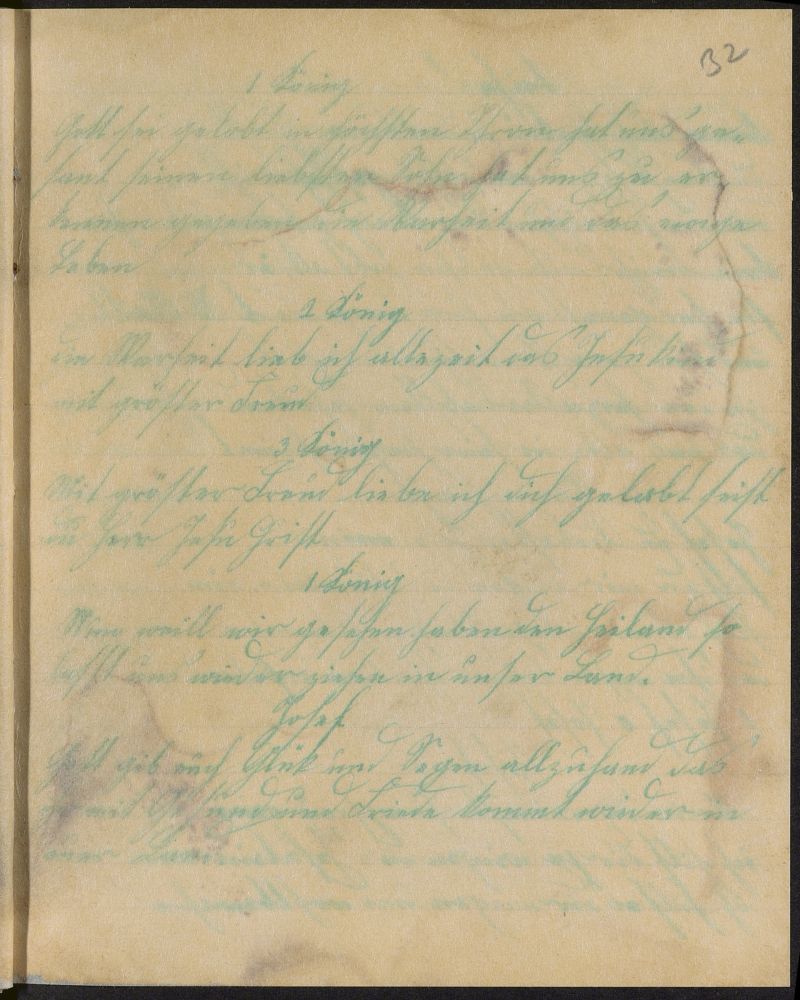 32
1 König
Gott sei gelobt im höchsten Thron hat uns ge-
sant seinen liebsten Sohn hat uns zu er-
kennen gegeben die Warheit und das ewige
Leben
2 König
die Warheit lieb ich allezeit das Jesu Kind
mit gröster Freud
3 König
Mit gröster Freud liebe ich dich gelobt seist
du Herr Jesu Christ
1 König
Nun weill wir gesehen haben den Heiland so
lasst uns wieder ziehen in unser Land.
Josef
Gott gib euch Glük und Segen allzuhand das
mit Gesund und Friede kommt wieder in
euer Land